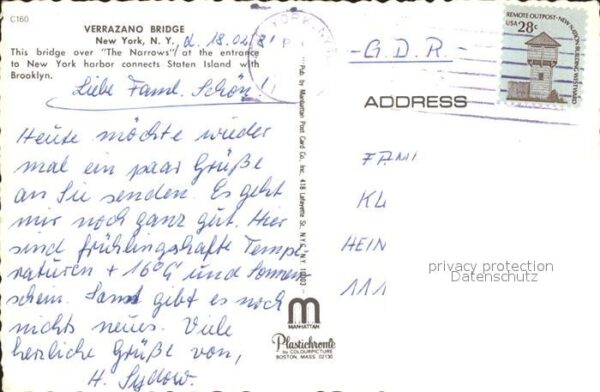 C160
VERRAZANO BRIDGE
New York, N. Y., d. 18.02.81
This bridge over "The Narrows" at the entrance
to New York harbor connects Staten Island with
Brooklyn.
Liebe Faml. Schön!
Heute möchte wieder
mal ein paar Grüße
an Sie senden. Es geht
mir noch ganz gut. Hier
sind frühlingshafte Tempe-
raturen + 16°C und Sonnen
schein. Sonst gibt es noch
nichts neues. Viele
herzliche Grüße von,
H. Sydow.
Pub. by Manhattan Post Card Co., Inc. 418 Lafayette St., N.Y.C., N.Y. 10003
M
MANHATTAN
Plastichrome
by COLOURPICTURE
BOSTON, MASS. 02130
REMOTE OUTPOST-NEW NATION BUILDING WESTWARD
USA 28c
-G.D.R-
ADDRESS
FAMI
KL
HEIN
111
privacy protection
Datenschutz